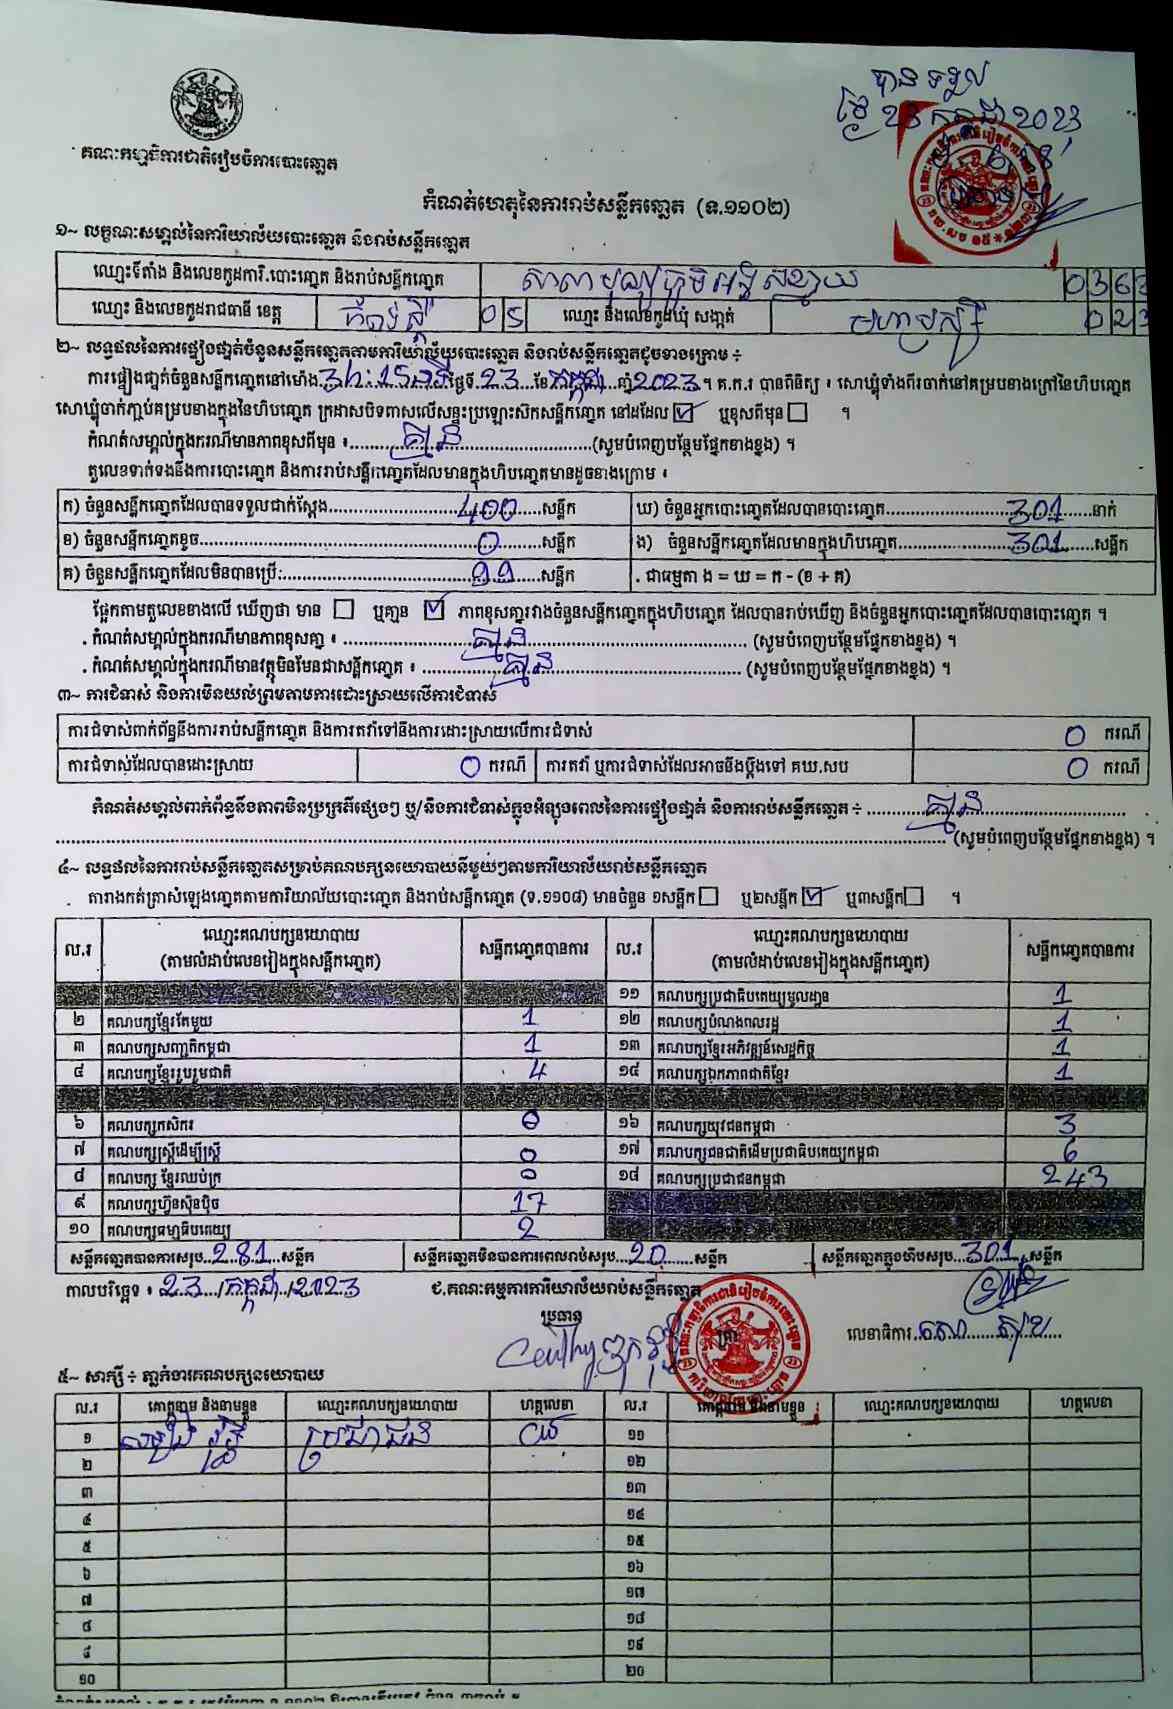 បានទទួល
ថ្ងៃ 23 កក្កដា 2023
គណៈកម្មាធិការជាតិរៀបចំការបោះឆ្នោត
កំណត់ហេតុនៃការរាប់សន្លឹកឆ្នោត (ទ.១១០២)
១~ លក្ខណៈសម្គាល់នៃការិយាល័យបោះឆ្នោត និងរាប់សន្លឹកឆ្នោត
ឈ្មោះទីតាំង និងលេខកូដការិ.បោះឆ្នោត និងរាប់សន្លឹកឆ្នោត សាលាបុណ្យភូមិអង្គស្វាយ 0363
ឈ្មោះ និងលេខកូដរាជធានី ខេត្ត កំពង់ស្ពឺ 05 ឈ្មោះ និងលេខកូដឃុំ សង្កាត់ មហាឫស្សី 023
២~ លទ្ធផលនៃការផ្ទៀងផ្ទាត់ចំនួនសន្លឹកឆ្នោតតាមការិយាល័យបោះឆ្នោត និងរាប់សន្លឹកឆ្នោតដូចខាងក្រោម ÷
ការផ្ទៀងផ្ទាត់ចំនួនសន្លឹកឆ្នោតនៅម៉ោង 3h:15 នាទី ថ្ងៃទី 23 ខែ កក្កដា ឆ្នាំ 2023 ។ គ.ក.រ បានពិនិត្យ ៖ សោឃ្លុំទាំងពីរចាក់នៅគម្របខាងក្រៅនៃហិបឆ្នោត
សោឃ្លុំចាក់ភ្ជាប់គម្របខាងក្នុងនៃហិបឆ្នោត ក្រដាសបិទពាសលើសន្ទះប្រឡោះស៊កសន្លឹកឆ្នោត នៅដដែល ☑ ឬខុសពីមុន ☐ ។
កំណត់សម្គាល់ក្នុងករណីមានភាពខុសពីមុន ៖ គ្មាន (សូមបំពេញបន្ថែមផ្នែកខាងខ្នង) ។
តួលេខទាក់ទងនឹងការបោះឆ្នោត និងការរាប់សន្លឹកឆ្នោតដែលមានក្នុងហិបឆ្នោតមានដូចខាងក្រោម ៖
ក) ចំនួនសន្លឹកឆ្នោតដែលបានទទួលជាក់ស្តែង 400 សន្លឹក ឃ) ចំនួនអ្នកបោះឆ្នោតដែលបានបោះឆ្នោត 301 នាក់
ខ) ចំនួនសន្លឹកឆ្នោតខូច 0 សន្លឹក ង) ចំនួនសន្លឹកឆ្នោតដែលមានក្នុងហិបឆ្នោត 301 សន្លឹក
គ) ចំនួនសន្លឹកឆ្នោតដែលមិនបានប្រើ: 99 សន្លឹក . ជាធម្មតា ង = ឃ = ក - (ខ + គ)
ផ្អែកតាមតួលេខខាងលើ ឃើញថា មាន ☐ ឬគ្មាន ☑ ភាពខុសគ្នារវាងចំនួនសន្លឹកឆ្នោតក្នុងហិបឆ្នោត ដែលបានរាប់ឃើញ និងចំនួនអ្នកបោះឆ្នោតដែលបានបោះឆ្នោត ។
. កំណត់សម្គាល់ក្នុងករណីមានភាពខុសគ្នា ៖ គ្មាន (សូមបំពេញបន្ថែមផ្នែកខាងខ្នង) ។
. កំណត់សម្គាល់ក្នុងករណីមានវត្ថុមិនមែនជាសន្លឹកឆ្នោត ៖ គ្មាន (សូមបំពេញបន្ថែមផ្នែកខាងខ្នង) ។
៣~ ការជំទាស់ និងការមិនយល់ព្រមតាមការដោះស្រាយលើការជំទាស់
ការជំទាស់ពាក់ព័ន្ធនឹងការរាប់សន្លឹកឆ្នោត និងការតវ៉ាទៅនឹងការដោះស្រាយលើការជំទាស់ 0 ករណី
ការជំទាស់ដែលបានដោះស្រាយ 0 ករណី ការតវ៉ា ឬការជំទាស់ដែលអាចនឹងប្តឹងទៅ គឃ.សប 0 ករណី
កំណត់សម្គាល់ពាក់ព័ន្ធនឹងភាពមិនប្រក្រតីផ្សេងៗ ឬ/និងការជំទាស់ក្នុងអំឡុងពេលនៃការផ្ទៀងផ្ទាត់ និងការរាប់សន្លឹកឆ្នោត ÷ គ្មាន
(សូមបំពេញបន្ថែមផ្នែកខាងខ្នង) ។
៤~ លទ្ធផលនៃការរាប់សន្លឹកឆ្នោតសម្រាប់គណបក្សនយោបាយនីមួយៗតាមការិយាល័យរាប់សន្លឹកឆ្នោត
តារាងកត់ត្រាសំឡេងឆ្នោតតាមការិយាល័យបោះឆ្នោត និងរាប់សន្លឹកឆ្នោត (ទ.១១០៨) មានចំនួន ១សន្លឹក ☐ ឬ២សន្លឹក ☑ ឬ៣សន្លឹក ☐ ។
ល.រ ឈ្មោះគណបក្សនយោបាយ (តាមលំដាប់លេខរៀងក្នុងសន្លឹកឆ្នោត) សន្លឹកឆ្នោតបានការ ល.រ ឈ្មោះគណបក្សនយោបាយ (តាមលំដាប់លេខរៀងក្នុងសន្លឹកឆ្នោត) សន្លឹកឆ្នោតបានការ
១១ គណបក្សប្រជាធិបតេយ្យមូលដ្ឋាន 1
២ គណបក្សខ្មែរតែមួយ 1 ១២ គណបក្សបំណងពលរដ្ឋ 1
៣ គណបក្សសញ្ជាតិកម្ពុជា 1 ១៣ គណបក្សខ្មែរអភិវឌ្ឍន៍សេដ្ឋកិច្ច 1
៤ គណបក្សខ្មែររួបរួមជាតិ 4 ១៤ គណបក្សឯកភាពជាតិខ្មែរ 1
៦ គណបក្សកសិករ 0 ១៦ គណបក្សយុវជនកម្ពុជា 3
៧ គណបក្សស្ត្រីដើម្បីស្ត្រី 0 ១៧ គណបក្សជនជាតិដើមប្រជាធិបតេយ្យកម្ពុជា 6
៨ គណបក្ស ខ្មែរឈប់ក្រ 0 ១៨ គណបក្សប្រជាជនកម្ពុជា 243
៩ គណបក្សហ៊្វុនស៊ិនប៉ិច 17
១០ គណបក្សធម្មាធិបតេយ្យ 2
សន្លឹកឆ្នោតបានការសរុប 281 សន្លឹក សន្លឹកឆ្នោតមិនបានការពេលរាប់សរុប 20 សន្លឹក សន្លឹកឆ្នោតក្នុងហិបសរុប 301 សន្លឹក
កាលបរិច្ឆេទ ៖ 23 / កក្កដា / 2023 ជ.គណៈកម្មការការិយាល័យរាប់សន្លឹកឆ្នោត
ប្រធាន ត្រា លេខាធិការ
៥~ សាក្សី ÷ ភ្នាក់ងារគណបក្សនយោបាយ
ល.រ គោត្តនាម និងនាមខ្លួន ឈ្មោះគណបក្សនយោបាយ ហត្ថលេខា ល.រ គោត្តនាម និងនាមខ្លួន ឈ្មោះគណបក្សនយោបាយ ហត្ថលេខា
១ ប្រជាជន ១១
២ ១២
៣ ១៣
៤ ១៤
៥ ១៥
៦ ១៦
៧ ១៧
៨ ១៨
៩ ១៩
១០ ២០